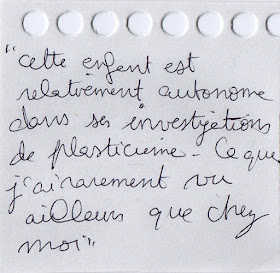 "cette enfant est
relativement autonome
dans ses investigations
de plasticienne - Ce que
j'ai rarement vu
ailleurs que chez
moi"